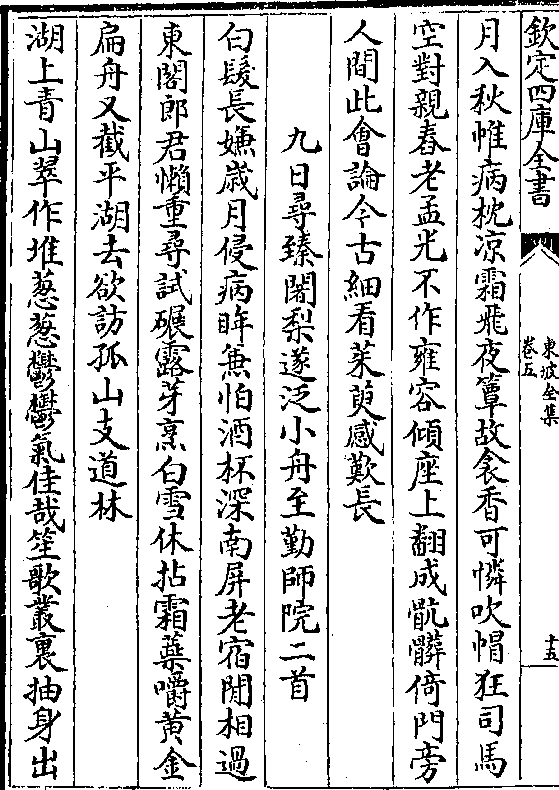 欽定四庫全書
東坡全集
卷五
十五
月入秋帷病枕凉霜飛夜簟故衾香可憐吹帽狂司馬
空對親舂老孟光不作雍容傾座上翻成骯髒倚門旁
人間此會論今古細看茱萸感歎長
九日尋臻闍梨遂泛小舟至勤師院二首
白髮長嫌歲月侵病眸兼怕酒杯深南屏老宿閒相過
東閣郎君懶重尋試碾露芽烹白雪休拈霜蘂嚼黃金
扁舟又截平湖去欲訪孤山支道林
湖上青山翠作堆葱葱鬱鬱氣佳哉笙歌叢裏抽身出